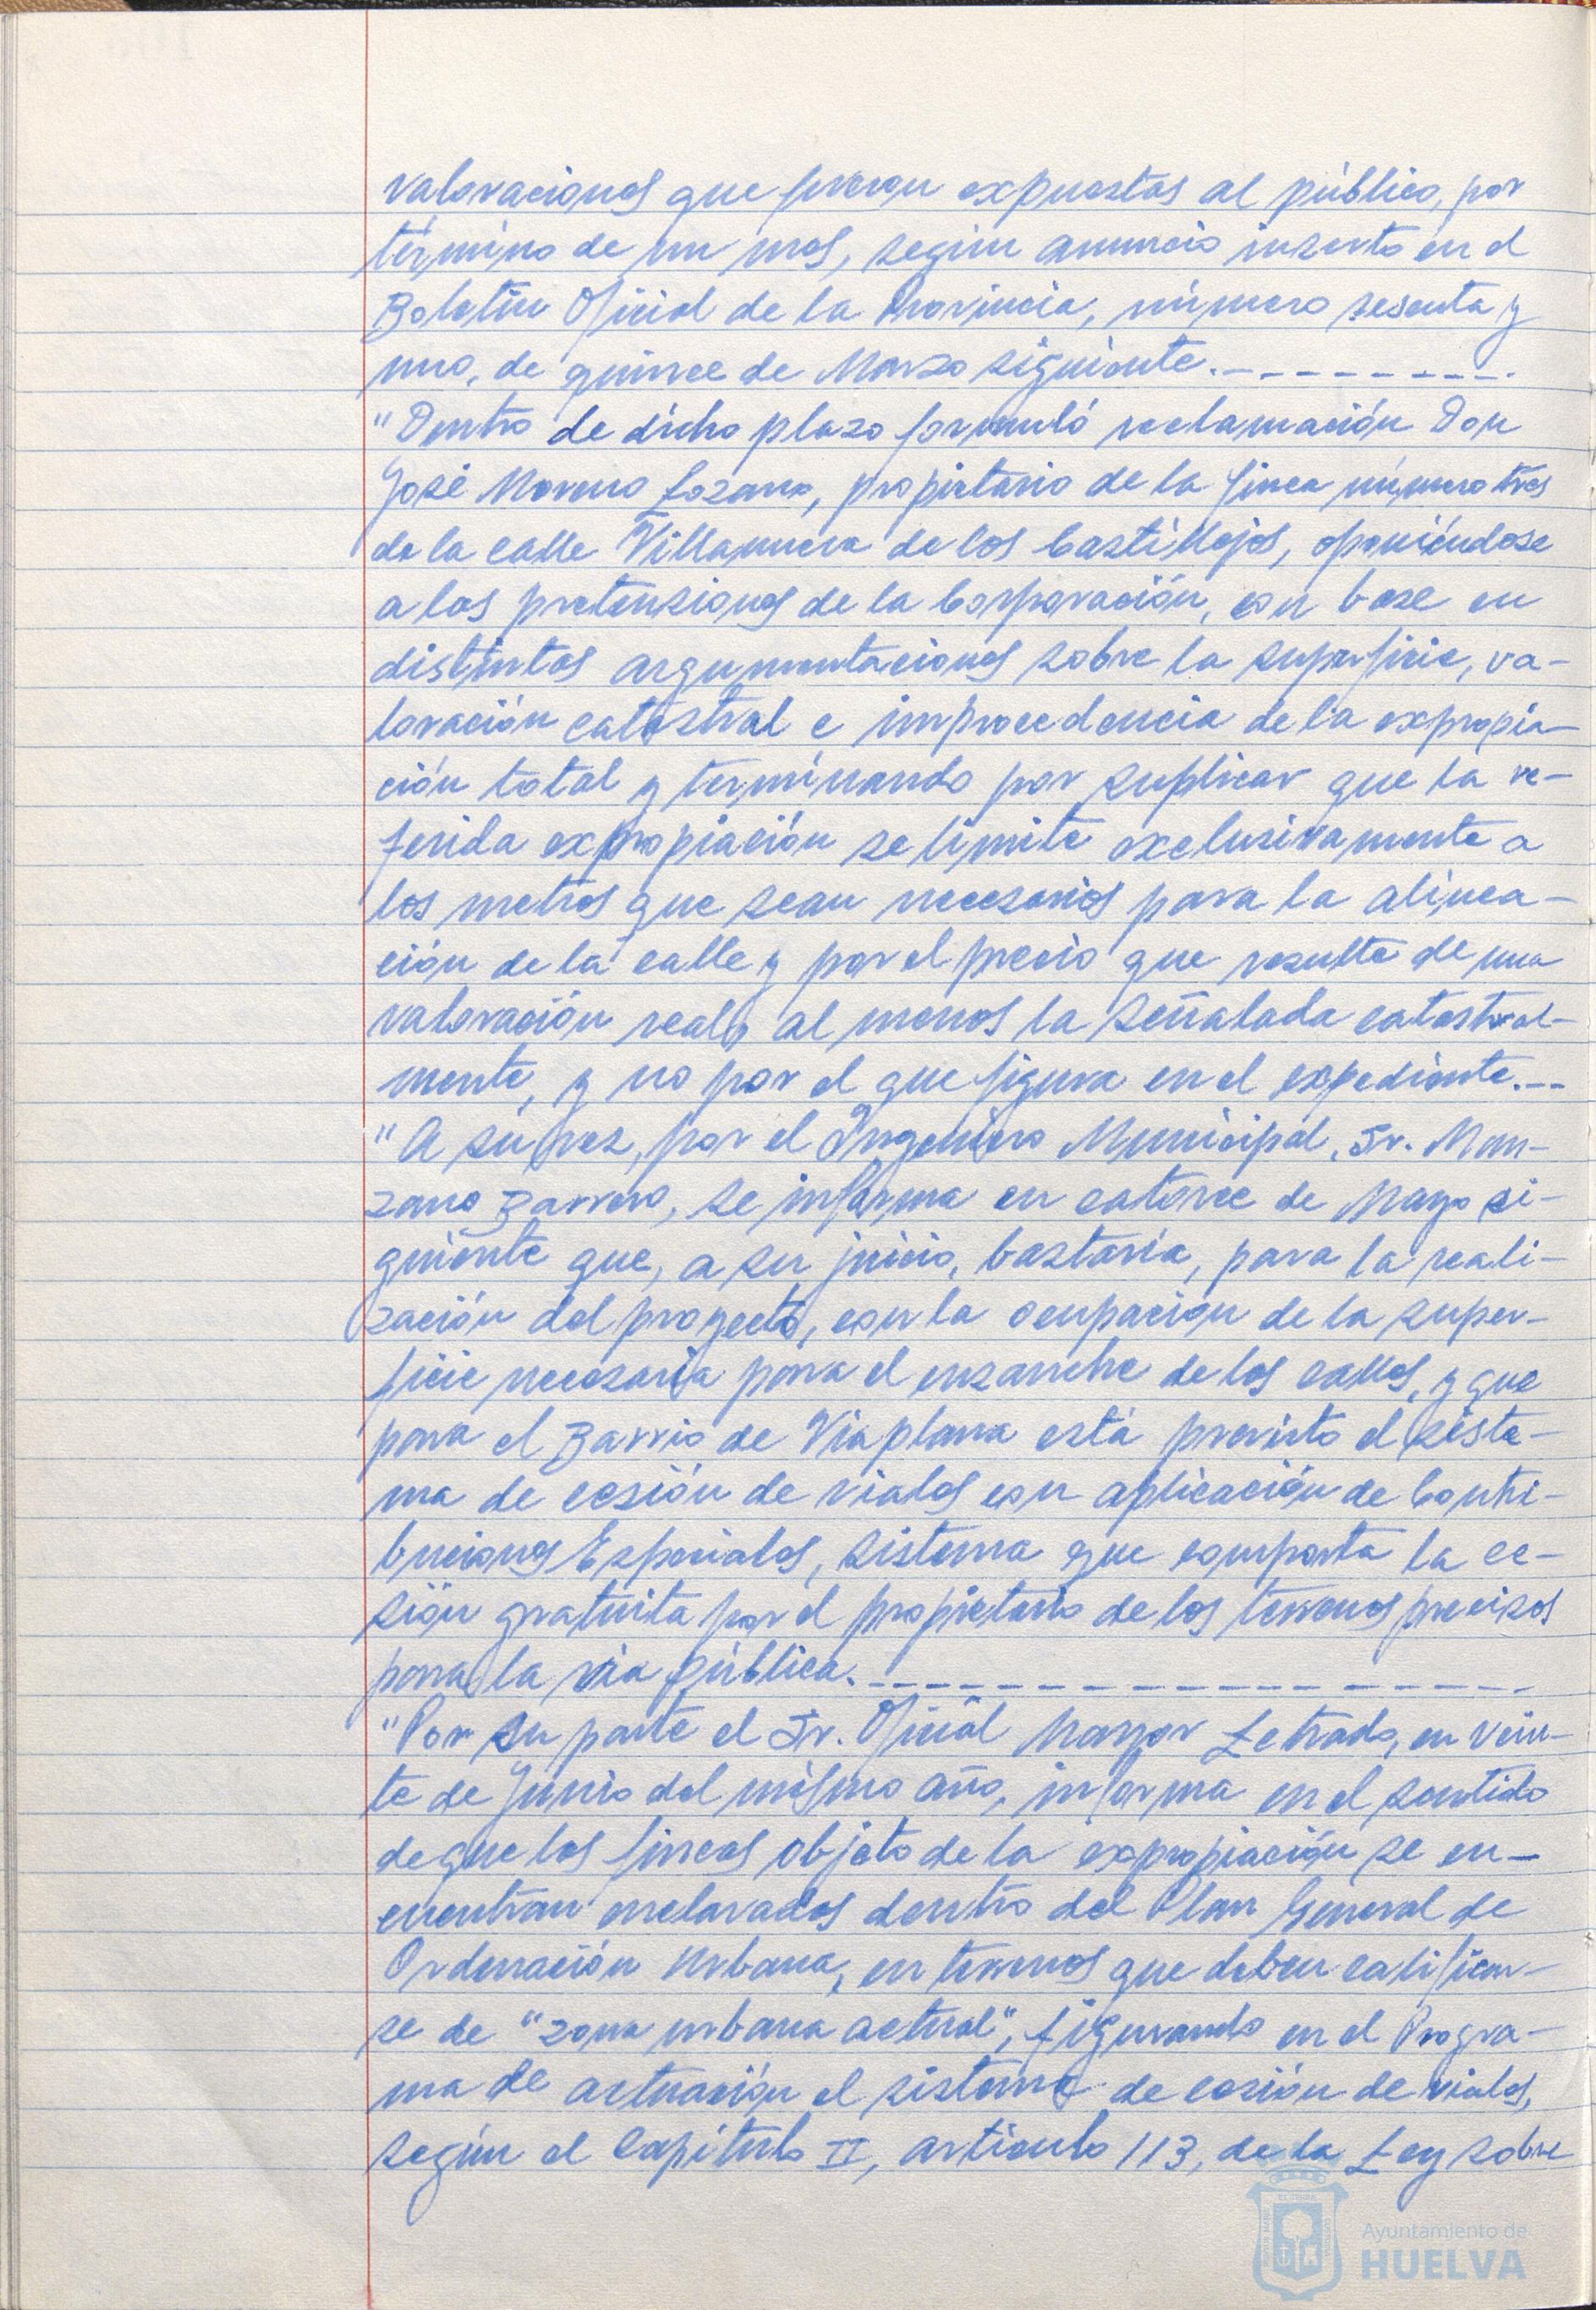 valoraciones que fueron expuestas al público, por
término de un mes, según anuncio inserto en el
Boletín Oficial de la Provincia, número sesenta y
uno, de quince de Marzo siguiente.---------
"Dentro de dicho plazo formuló reclamación Don
José Moreno Lozano, propietario de la finca número tres
de la calle Villanueva de los Castillejos, oponiéndose
a las pretensiones de la Corporación, con base en
distintas argumentaciones sobre la superficie, va-
loración catastral e improcedencia de la expropia-
ción total y terminando por suplicar que la re-
ferida expropiación se limite exclusivamente a
los metros que sean necesarios para la alinea-
ción de la calle y por el precio que resulte de una
valoración real, al menos la señalada catastral-
mente, y no por el que figura en el expediente.--
"A su vez, por el Ingeniero Municipal, Sr. Man-
zano Barrero, se informa en catorce de Mayo si-
guiente que, a su juicio, bastaría, para la reali-
zación del proyecto, con la ocupación de la super-
ficie necesaria para el ensanche de las calles, y que
para el Barrio de Viaplana está previsto el siste-
ma de cesión de viales con aplicación de Contri-
buciones Especiales, sistema que comporta la ce-
sión gratuita por el propietario de los terrenos precisos
para la vía pública.------------------
"Por su parte el Sr. Oficial Mayor Letrado, en vein-
te de Junio del mismo año, informa en el sentido
de que las fincas objeto de la expropiación se en-
cuentran enclavadas dentro del Plan General de
Ordenación Urbana, en terrenos que deben calificar-
se de "zona urbana actual", figurando en el Progra-
ma de actuación el sistema de cesión de viales,
según el capítulo II, artículo 113, de la Ley sobre
Ayuntamiento de
HUELVA